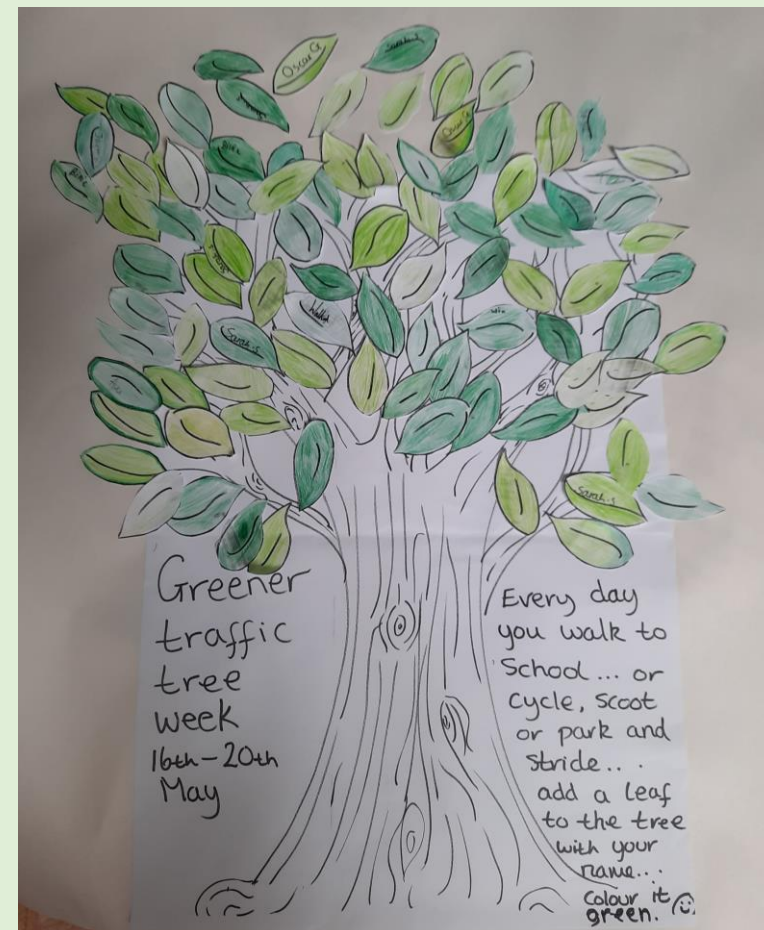 Oscar G
Oscar G
Sarah.s
Sarah.s
Greener
traffic
tree
week
16th - 20th
May
Every day
you walk to
School... or
cycle, scoot
or park and
stride...
add a leaf
to the tree
with your
name...
Colour it
green.